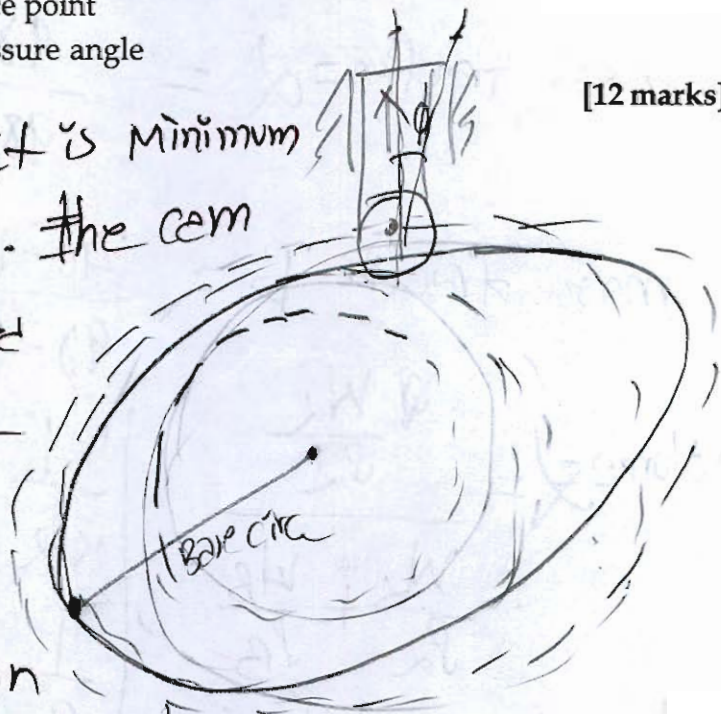 e point
ssure angle
[12 marks]
t is Minimum
. the cam
φ
Base circ
n